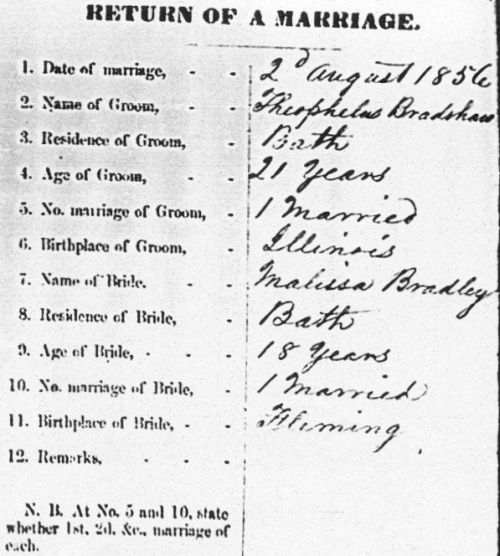 RETURN OF A MARRIAGE.
1. Date of marriage, - - 2d August 1856
2. Name of Groom, - - Theophelus Bradshaw
3. Residence of Groom, - Bath
4. Age of Groom, - - 21 Years
5. No. marriage of Groom, - 1 Married
6. Birthplace of Groom, - Illinois
7. Name of Bride. - - Malissa Bradley
8. Residence of Bride, - Bath
9. Age of Bride, - - - 18 Years
10. No. marriage of Bride, - 1 Married
11. Birthplace of Bride, - - Fleming
12. Remarks, - - -
N. B. At No. 5 and 10, state
whether 1st, 2d, &c., marriage of
each.